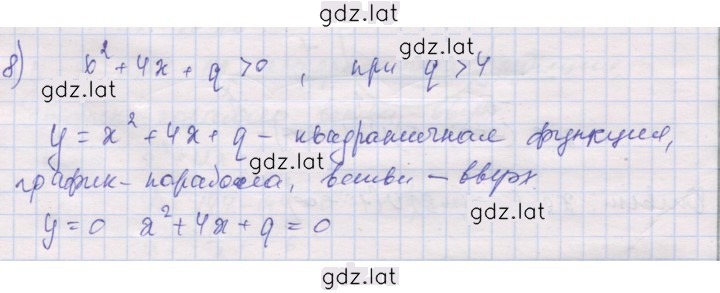 gdz.lat
gdz.lat
8) x² + 4x + q > 0 , при q > 4
gdz.lat
gdz.lat
y = x² + 4x + q – квадратичная функция,
gdz.lat
график – парабола, ветви – вверх
gdz.lat
y = 0 x² + 4x + q = 0
gdz.lat